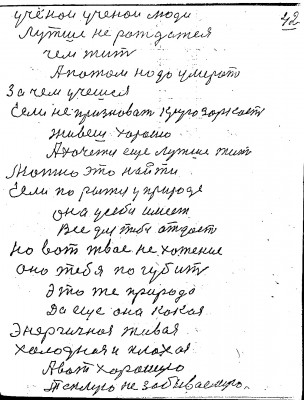 учёной ученой люди 42
Лутше не рождатся
чем жит
А потом надо умерат
Зачем учешся
Если не признават
Живеш хорошо
А хочетси еще лутше жит
Можно это найти
Если по у природе
она у себи имеет
Все для тибя отдаст
Но вот твае не хотение
оно тебя по губит
Это же природа
Да еще она кокая
Энергичная живая
холодная и плохая
А вот хорошую
Теплую не забываемую.